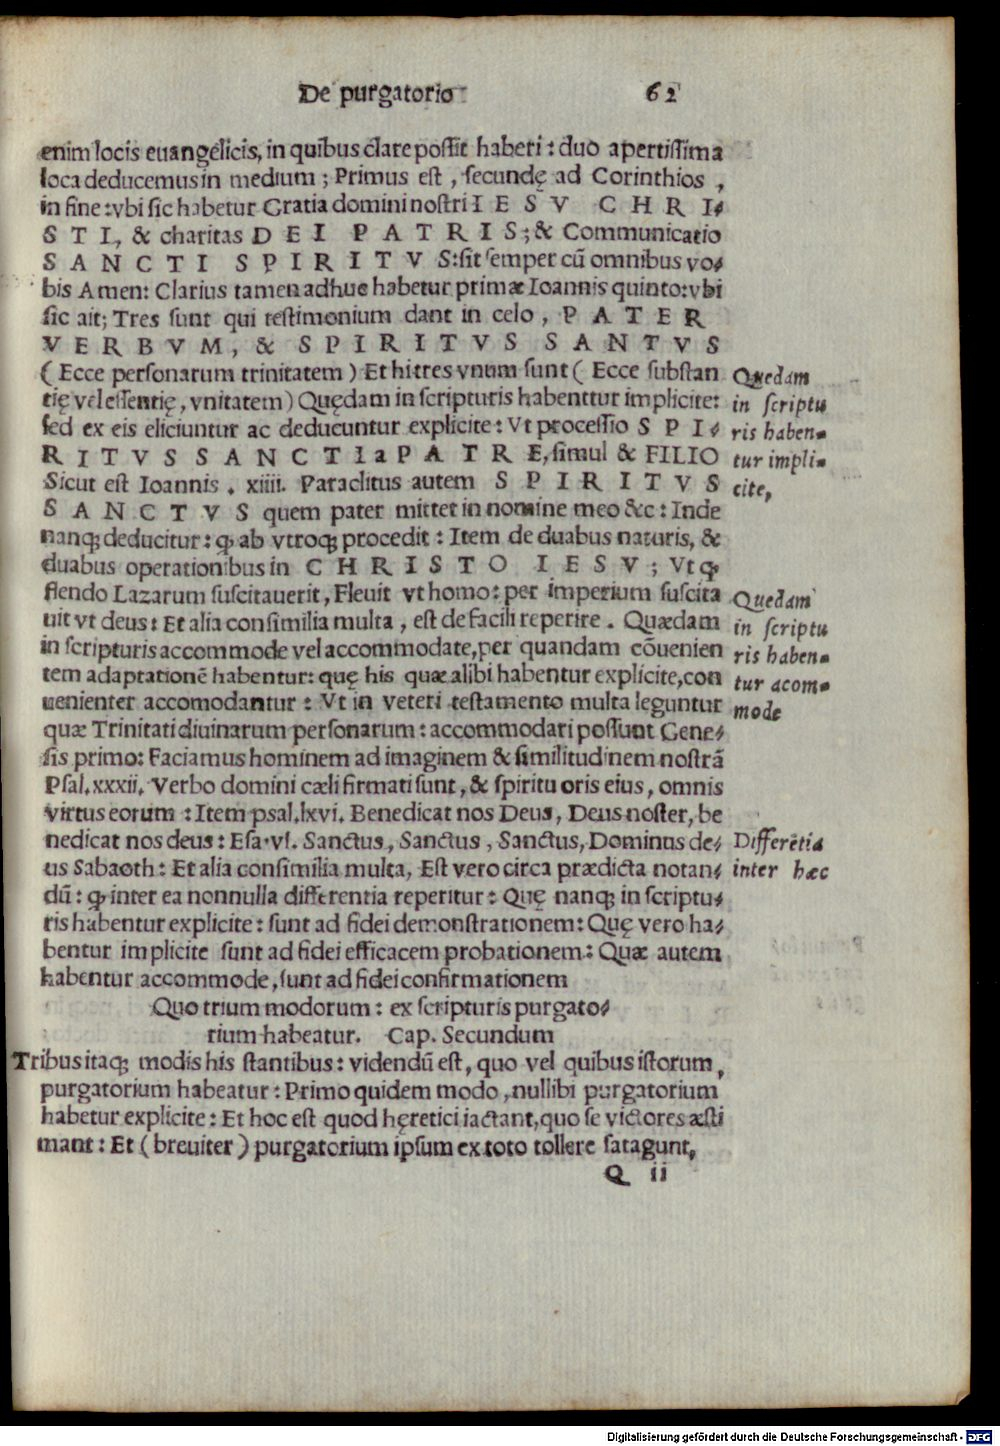 De purgatorio 62
enim locis euangelicis, in quibus clare possit haberi : duo apertissima
loca deducemus in medium ; Primus est , secundę ad Corinthios ,
in fine : vbi sic habetur Gratia domini nostri I E S V C H R I⸗
S T I, & charitas D E I P A T R I S ; & Communicatio
S A N C T I S P I R I T V S : sit semper cū omnibus vo⸗
bis Amen : Clarius tamen adhuc habetur primæ Ioannis quinto : vbi
sic ait ; Tres sunt qui testimonium dant in celo , P A T E R
V E R B V M , & S P I R I T V S S A N T V S
( Ecce personarum trinitatem ) Et hi tres vnum sunt ( Ecce substan
tię vel essentię , vnitatem ) Quędam in scripturis habentur implicite :
sed ex eis eliciuntur ac deducuntur explicite : Vt processio S P I⸗
R I T V S S A N C T I a P A T R E, simul & FILIO
Sicut est Ioannis . xiiii. Paraclitus autem S P I R I T V S
S A N C T V S quem pater mittet in nomine meo &c : Inde
nanq; deducitur : ꝙ ab vtroq; procedit : Item de duabus naturis, &
duabus operationibus in C H R I S T O I E S V ; Vt ꝙ
flendo Lazarum suscitauerit , Fleuit vt homo : per imperium suscita
uit vt deus : Et alia consimilia multa , est de facili reperire . Quædam
in scripturis accommode vel accommodate, per quandam cōuenien
tem adaptationē habentur : quę his quæ alibi habentur explicite, con
uenienter accomodantur : Vt in veteri testamento multa leguntur
quæ Trinitati diuinarum personarum : accommodari possunt Gene⸗
sis primo : Faciamus hominem ad imaginem & similitudinem nostrā
Psal. xxxii. Verbo domini cæli firmati sunt , & spiritu oris eius , omnis
virtus eorum : Item psal. lxvi. Benedicat nos Deus, Deus noster, be
nedicat nos deus : Esa. vi. Sanctus, Sanctus , Sanctus, Dominus de⸗
us Sabaoth : Et alia consimilia multa, Est vero circa prædicta notan⸗
dū : ꝙ inter ea nonnulla differentia reperitur : Quę nanq; in scriptu⸗
ris habentur explicite : sunt ad fidei demonstrationem : Quę vero ha⸗
bentur implicite sunt ad fidei efficacem probationem : Quæ autem
habentur accommode , sunt ad fidei confirmationem
Quo trium modorum : ex scripturis purgato⸗
rium habeatur. Cap. Secundum
Tribus itaq; modis his stantibus : videndū est , quo vel quibus istorum ,
purgatorium habeatur : Primo quidem modo , nullibi purgatorium
habetur explicite : Et hoc est quod hęretici iactant, quo se victores æsti
mant : Et ( breuiter ) purgatorium ipsum ex toto tollere satagunt,
Q ii
Quædam
in scriptu
ris haben⸗
tur impli⸗
cite,
Quedam
in scriptu
ris haben⸗
tur acom⸗
mode
Differētia
inter hæc
Digitalisierung gefördert durch die Deutsche Forschungsgemeinschaft - DFG